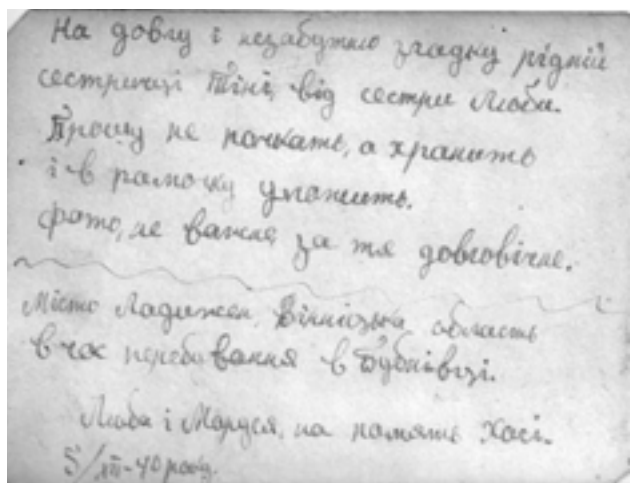 На довгу і незабутню згадку рідній
сестриці Тіні, від сестри Люби.
Прошу не почкать, а хранить
і в рамочку уложить.
фото, не важне, за те довговічне.
Місто Ладижен, Вінніцька область
в час перебування в Бубнівці.
Люба і Маруся, на память Хасі.
5/XII-40 року.